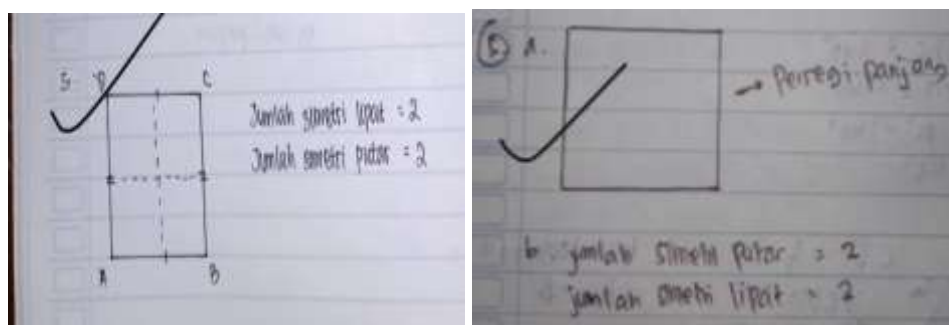 5. D C
Jumlah simetri lipat = 2
Jumlah simetri putar = 2
A B
5 a.
→ Persegi panjang
b. jumlah simetri putar = 2
jumlah simetri lipat = 2